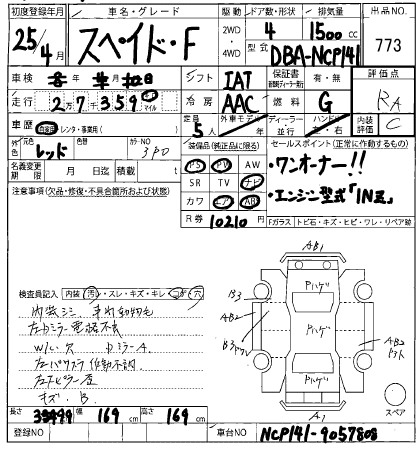 初度登録年月 車名・グレード 駆動 ドア数・形状 排気量 出品NO.
25年4月 スペイド・F 2WD・4WD 4 1500cc 773
型式 DBA-NCP141
車検 年 月 日 シフト IAT 保証書 有・無 評価点
走行 27359 km マイル 冷房 AAC 燃料 G RA
車歴 自家用 レンタ・事業用( ) 定員 5人 外車モデル 年 ディーラー 並行 ハンドル 左・右 内装評価 C
外色 元色 レッド 色替 カラーNO 3P0 装備品(純正品に限る) セールスポイント(正常に作動するもの)
名義変更期限 月 日迄 積載量 t PS PW AW ・ワンオーナー!!
注意事項(欠品・修復・不具合箇所および状態) SR TV ナビ ・エンジン型式「1NZ」
カワ エアB ABS
R券 10210円 Fガラス トビ石・キズ・ヒビ・ワレ・リペア跡
検査員記入 内装(汚・スレ・キズ・キレ・コゲ・穴)
内装シミ
左ドミラー電格不良
W小 穴 DミラーA
左パワスラ作動不調
キズ B
AB1
Pハゲ
B3
AB2
Pハゲ
AB2
Pハゲ
A1
スペア
長さ 幅 169 cm 高さ 169 cm
登録NO 車台NO NCP141-9057808